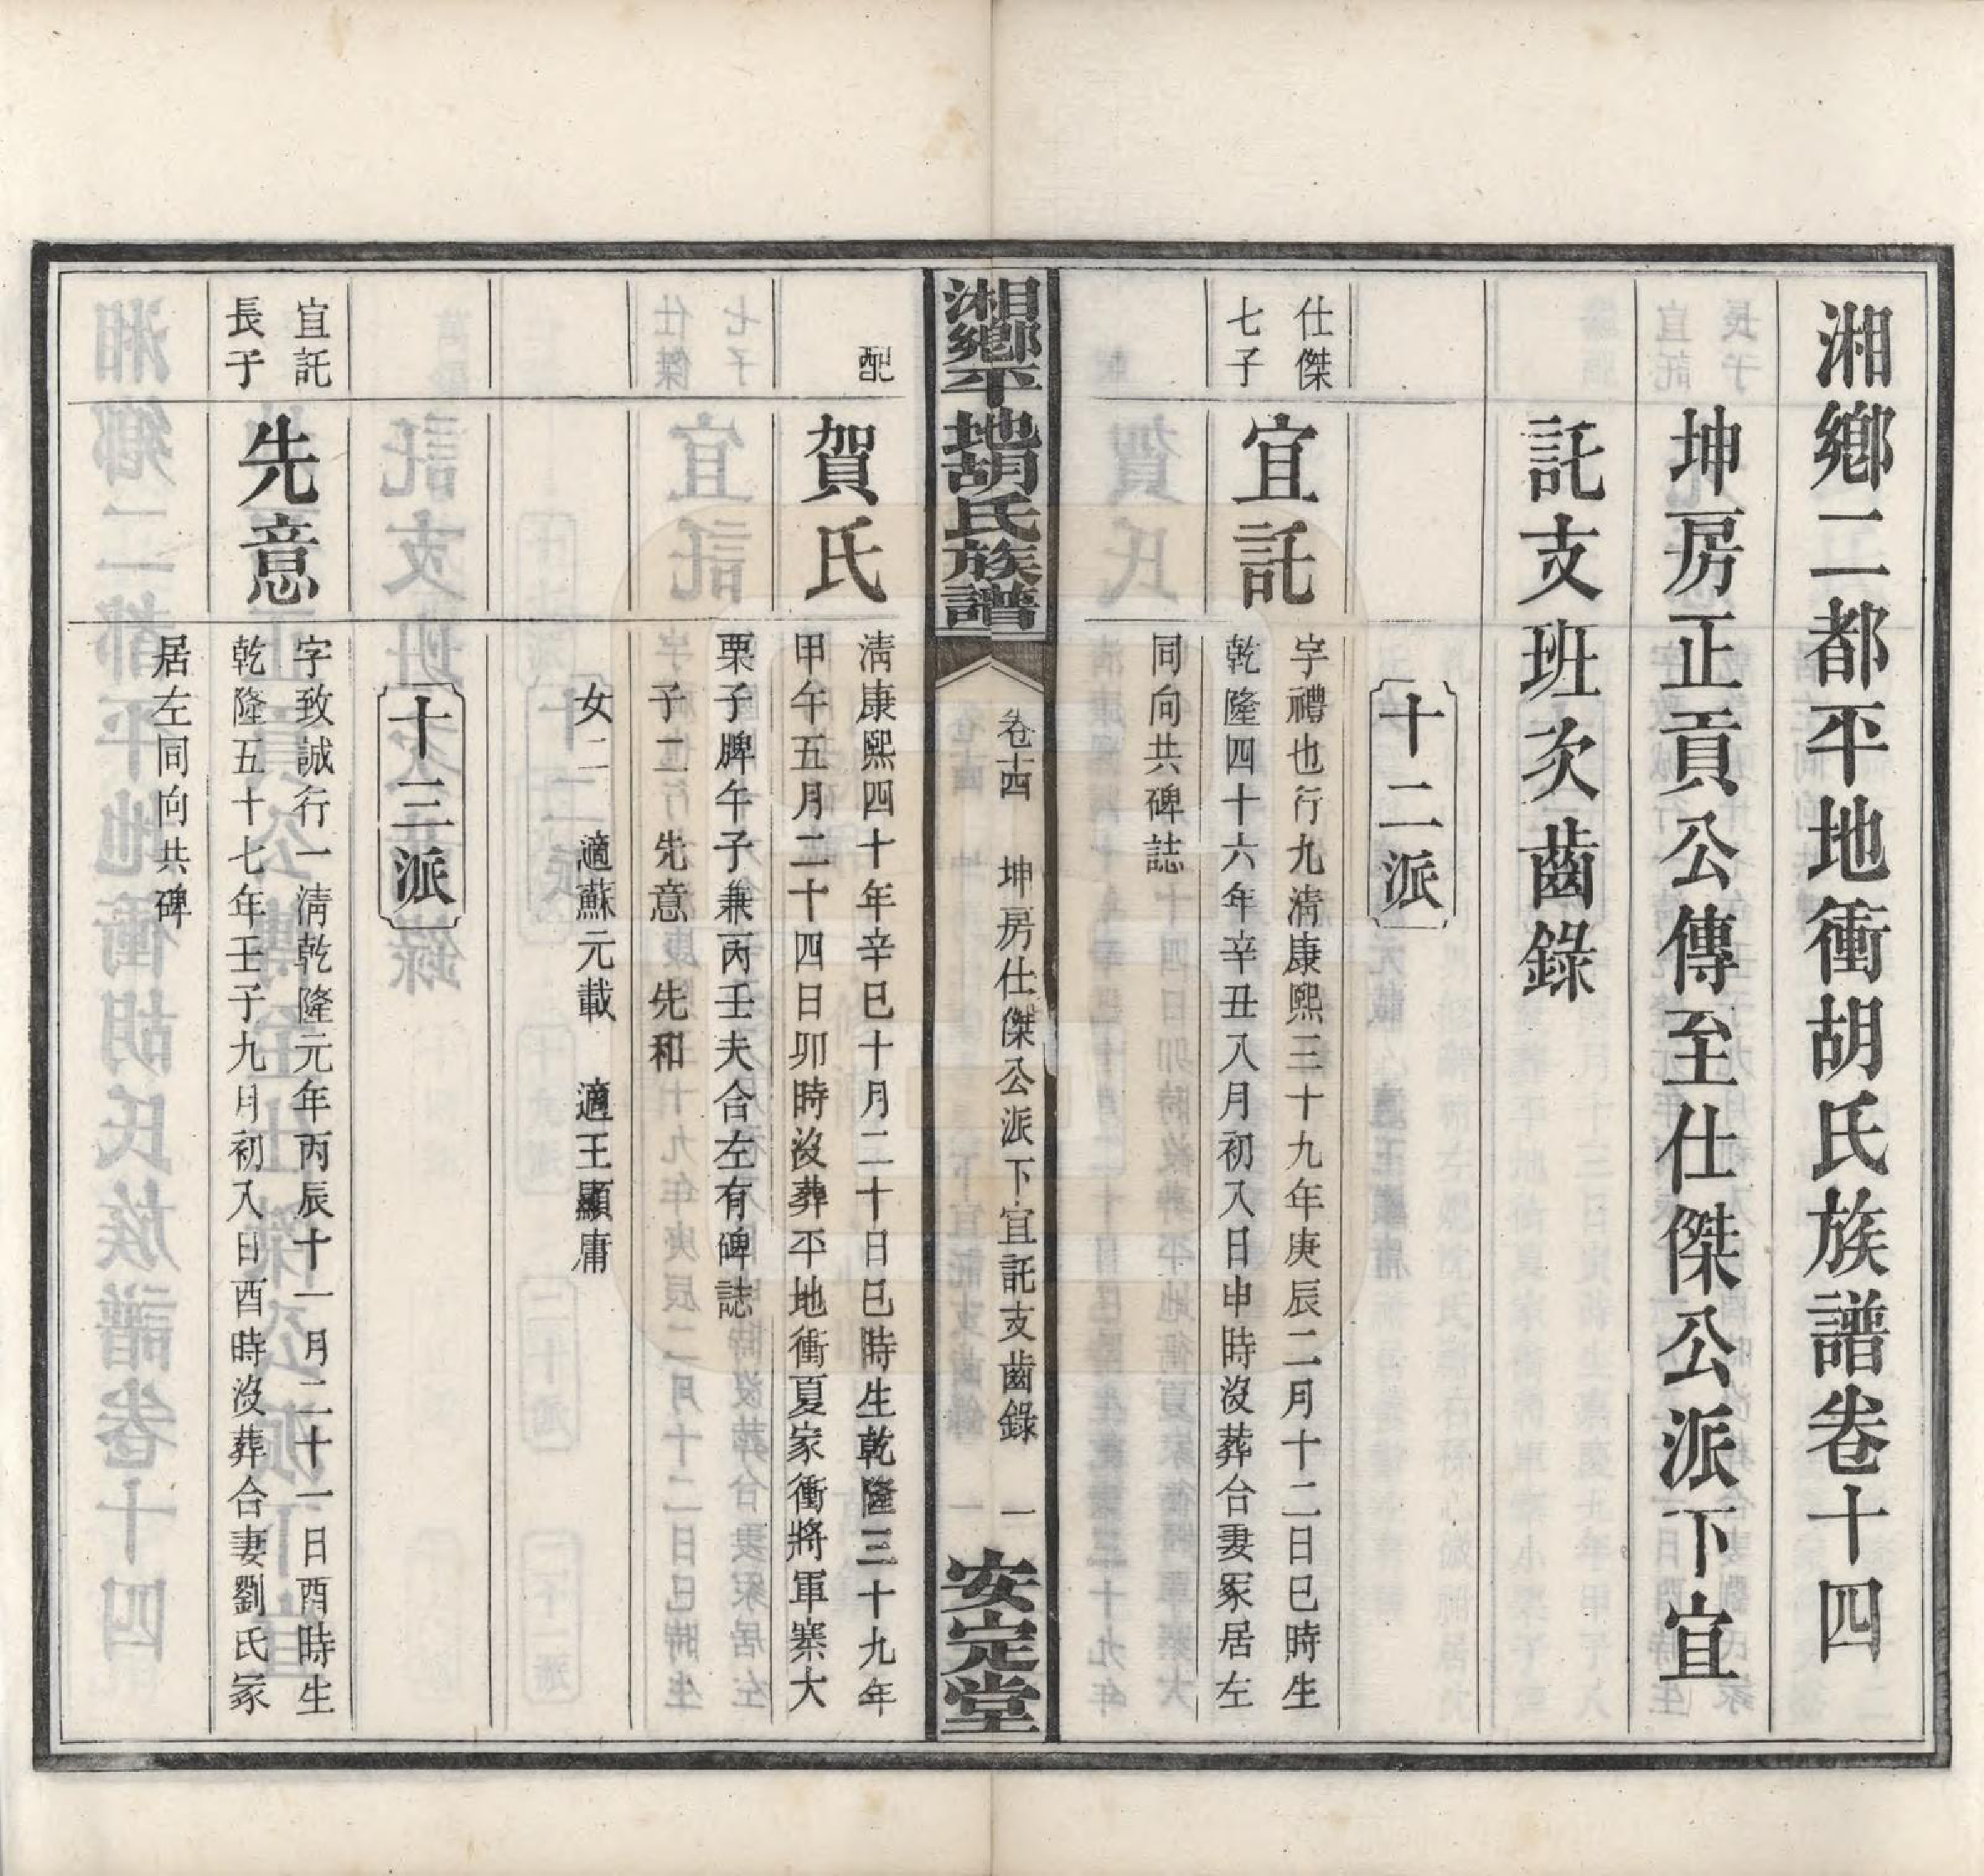 湘鄉二都平地衝胡氏族譜卷十四
坤房正貢公傳至仕傑公派下宜
託支班次齒錄
十二派
仕傑
七子
宜託
字禮也行九清康熙三十九年庚辰二月十二日巳時生
乾隆四十六年辛丑八月初入日申時沒葬合妻冢居左
同向共碑誌
湘鄉平地胡氏族譜
卷十四 坤房仕傑公派下宜託支齒錄 一
安定堂
配
賀氏
清康熙四十年辛巳十月二十日巳時生乾隆三十九年
甲午五月二十四日卯時沒葬平地衝夏家衝將軍寨大
栗子脾午子兼丙壬夫合左有碑誌
子二 先意 先和
女二 適蘇元載 適王顯庸
十三派
宜託
長子
先意
字致誠行一清乾隆元年丙辰十一月二十一日酉時生
乾隆五十七年壬子九月初入日酉時沒葬合妻劉氏冢
居左同向共碑